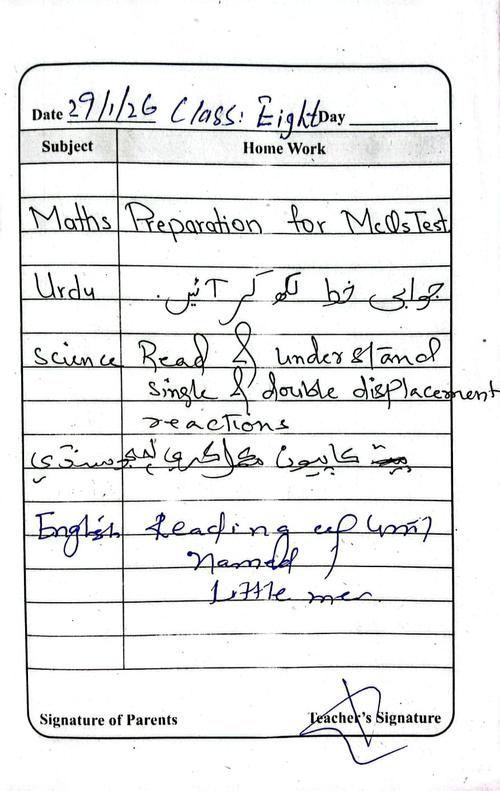 Date 29/1/26 Class: Eight Day
Subject Home Work
Maths Preparation for McQsTest
Urdu جوابی خط لکھ کر آئیں.
Science Read & understand
single & double displacement
reactions
ڪاپيون مڪمل ڪري
English Reading of Unit
Named
Little men
Signature of Parents Teacher's Signature